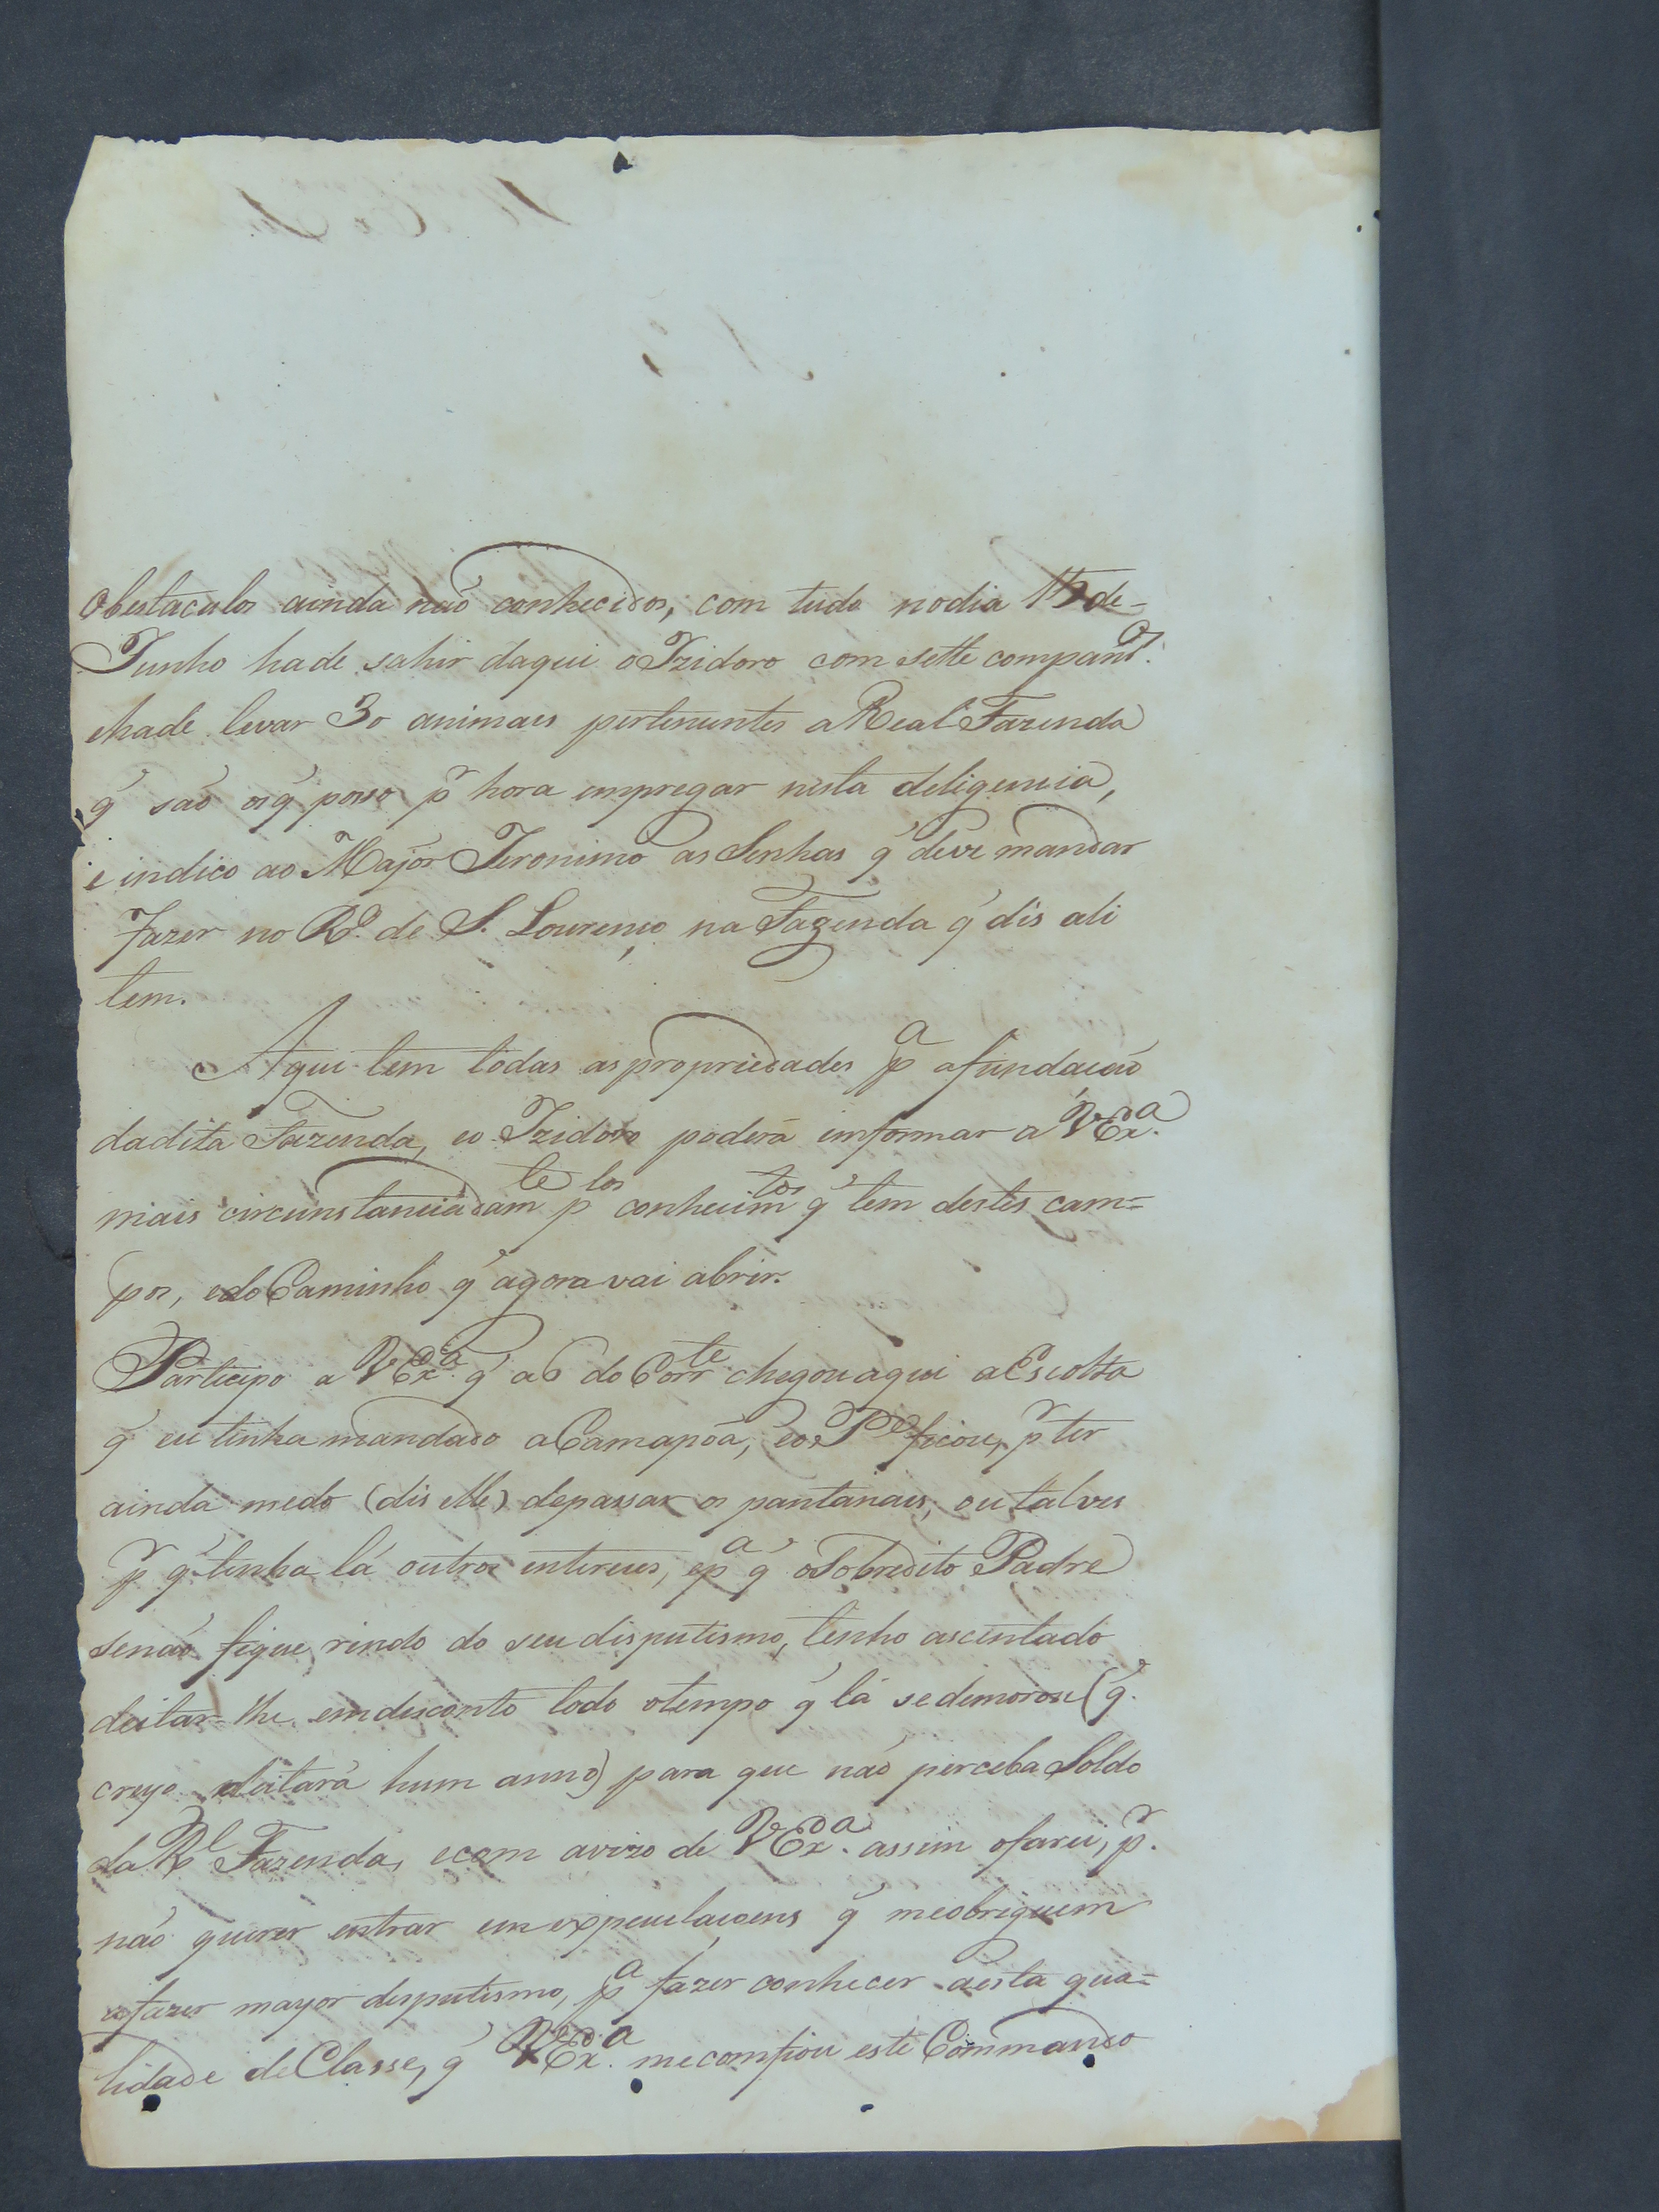 Obestaculos ainda naõ conhecidos, com tudo nodia 15 de-
Junho hade sahir daqui o Izidoro com sette companos.
ehade levar 30 animaes pertenentes a Real Fazenda
q' saõ os q' posso pr hora empregar nesta deligencia,
e indico ao Major Jeronimo as Senhas q' deve mandar
fazer no Ro. de S. Lourenço na Fazenda q' dis ali
tem.
Aqui tem todas as propriedades pa afundaçaõ
dadita Fazenda, eo Izidoro poderá informar a VExa.
mais circunstanciadamte plos conhecimtos q' tem destes cam=
pos, edo Caminho q' agora vai abrir.
Participo a VExa. q' a 6 do Corrte chegou aqui a Escolta
q' eu tinha mandado a Camapoã, eo Pe ficou, pr ter
ainda medo (dis elle) depassar os pantanaes, ou talves
pr q' tinha lá outros intereces, epa q' o Sobredito Padre
senaõ fique rindo do seu disputismo, tenho ascentado
deitar-lhe emdisconto todo otempo q' lá sedemorou (q'.
creyo deitará hum anno) para que naõ perceba Soldo
da Rl Fazenda, ecom avizo de VExa. assim ofarei, pr.
naõ querer entrar em expeculaçoens q' meobriguem
afazer mayor disputismo, pa fazer conhecer aesta qua=
lidade de Classe, q' VExa. meconfiou este Commando